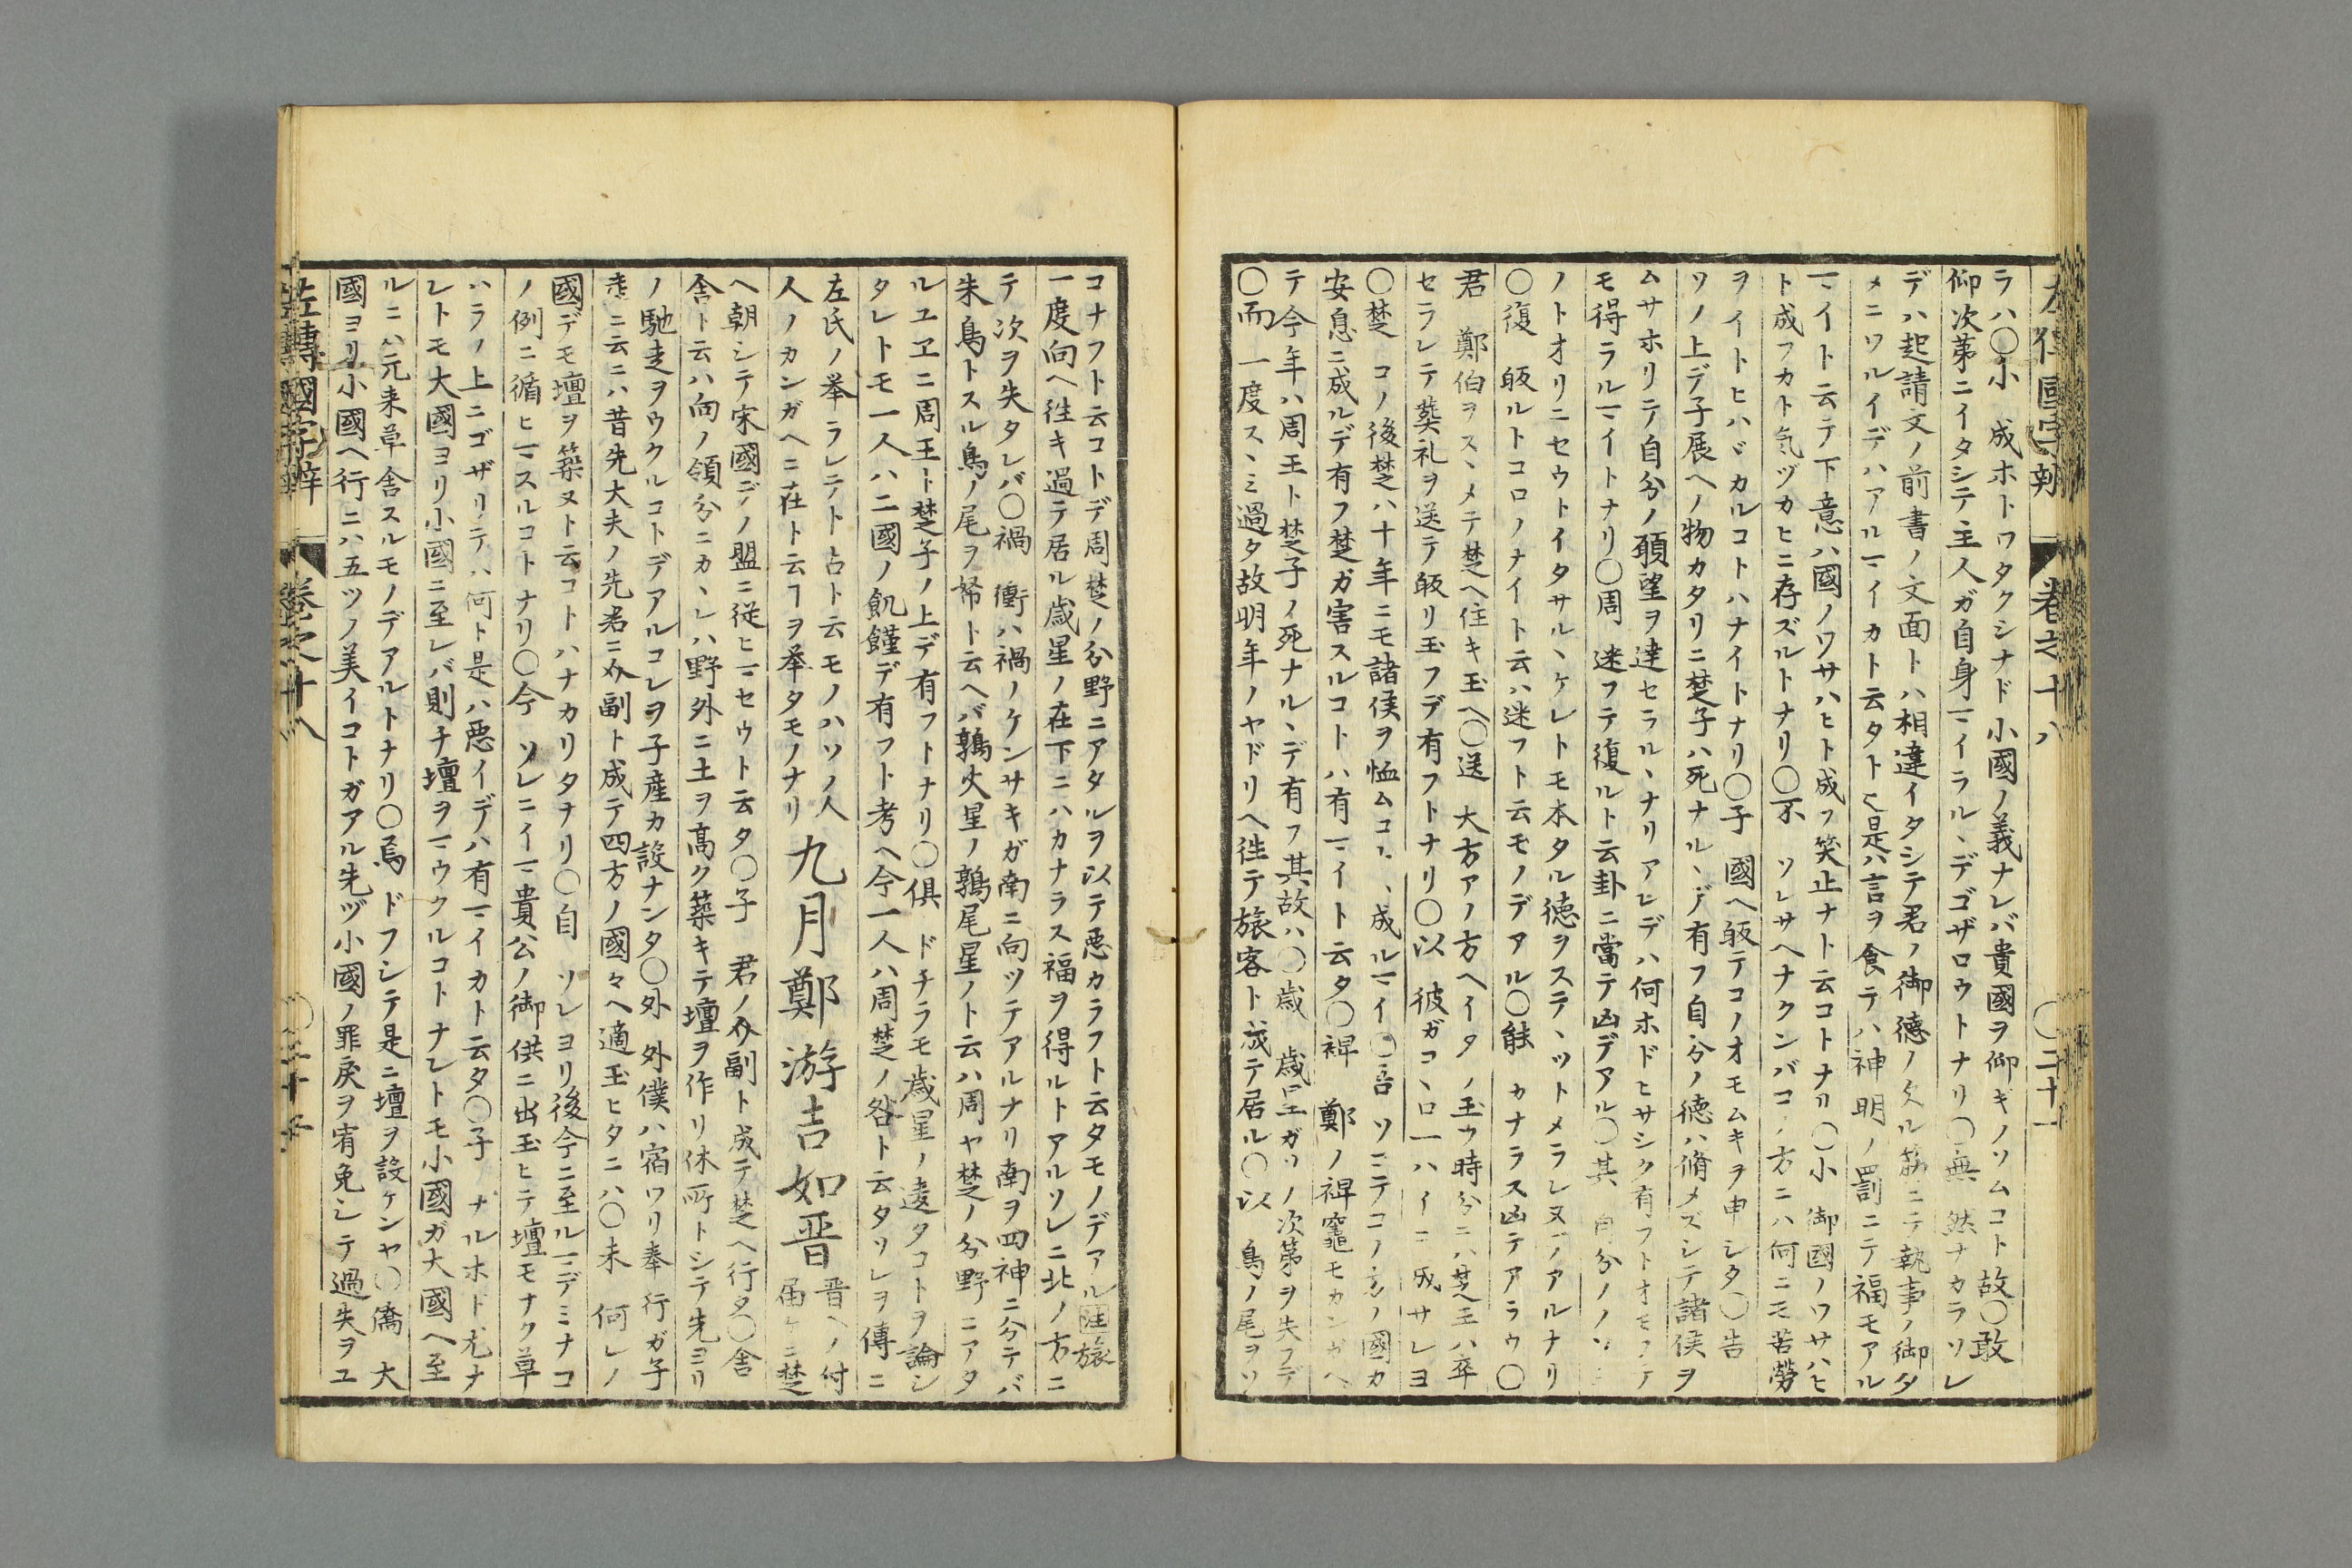 卷之十八
ラハ〇小 成ホトワタクシナド小國ノ義ナレバ貴國ヲ仰ギノソムコト故〇敢
仰次第ニイタシテ主人ガ自身マイラルヽデゴザロウトナリ〇無 然ナカラソレ
デハ起請文ノ前書ノ文面トハ相違イタシテ君ノ御德ノ欠ル筋ニテ執事ノ御タ
メニワルイデハアルマイカト云タト也是ハ言ヲ食テハ神明ノ罰ニテ福モアル
マイト云テ下意ハ國ノワサハヒト成フ笑止ナト云コトナリ〇小 御國ノワサハヒ
ト成フカト気ヅカヒニ存ズルトナリ〇不 ソレサヘナクンバコノ方ニハ何ニモ苦勞
ヲイトヒハヾカルコトハナイトナリ〇子 國ヘ皈テコノオモムキヲ申シタ〇告
ソノ上デ子展ヘノ物カタリニ楚子ハ死ナルヽデ有フ自分ノ德ハ脩メズシテ諸侯ヲ
ムサホリテ自分ノ願望ヲ達セラルヽナリアヒデハ何ホドヒサシク有フトオモフテ
モ得ラルマイトナリ〇周 迷フテ復ルト云卦ニ當テ凶デアル〇其 自分ノノソ
ノトオリニセウトイタサルヽケレトモ本タル德ヲステヽツトメラレヌデアルナリ
〇復 皈ルトコロノナイト云ハ迷フト云モノデアル〇能 カナラス凶テアラウ〇
君 鄭伯ヲスヽメテ楚ヘ往キ玉ヘ〇送 大方アノ方ヘイタノ玉ウ時分ニハ楚王ハ卒
セラレテ葬礼ヲ送テ皈リ玉フデ有フトナリ〇以 彼ガコヽロ一ハイニ成サレヨ
〇楚 コノ後楚ハ十年ニモ諸侯ヲ恤ムコトヽ成ルマイ〇吾 ソコテコノ方ノ國カ
安息ニ成ルデ有フ楚ガ害スルコトハ有マイト云タ〇裨 鄭ノ裨竈モカンガヘ
テ今年ハ周王ト楚子ノ死ナルヽデ有フ其故ハ〇歳 歳星ガソノ次第ヲ失フデ
〇而 一度スヽミ過タ故明年ノヤドリヘ徃テ旅客ト成テ居ル〇以 鳥ノ尾ヲソ
コナフト云コトデ周楚ノ分野ニアタルヲ以テ悪カラフト云タモノデアル注旅
一度向ヘ徃キ過テ居ル歳星ノ在下ニハカナラス福ヲ得ルトアルソレニ北ノ方ニ
テ次ヲ失タレバ〇禍 衝ハ禍ノケンサキガ南ニ向ツテアルナリ南ヲ四神ニ分テバ
朱鳥トスル鳥ノ尾ヲ帑ト云ヘバ鶉火星ノ鶉尾星ノト云ハ周ヤ楚ノ分野ニアタ
ルユヱニ周王ト楚子ノ上デ有フトナリ〇俱 ドチラモ歳星ノ逺タコトヲ論シ
タレトモ一人ハ二國ノ飢饉デ有フト考ヘ今一人ハ周楚ノ咎ト云タソレヲ傳ニ
左氏ノ挙ラレテト占ト云モノハソノ人
人ノカンガヘニ在ト云フヲ举タモノナリ九月鄭游吉如晋 晋ヘノ付届ケニ楚
ヘ朝シテ宋國デノ盟ニ従ヒマセウト云タ〇子 君ノ介副ト成テ楚ヘ行タ〇舎
舎ト云ハ向ノ領分ニカヽレハ野外ニ土ヲ髙ク築キテ壇ヲ作リ休所トシテ先ヨリ
ノ馳走ヲウクルコトデアルコレヲ子産カ設ナンタ〇外 外僕ハ宿ワリ奉行ガ子
産ニ云ニハ昔先大夫ノ先君ニ介副ト成テ四方ノ國々ヘ適玉ヒタニハ〇未 何レノ
國デモ壇ヲ築ヌト云コトハナカリタナリ〇自 ソレヨリ後今ニ至ルマデミナコ
ノ例ニ循ヒマスルコトナリ〇今 ソレニイマ貴公ノ御供ニ出玉ヒテ壇モナク草
ハラノ上ニゴザリテハ何ト是ハ悪イデハ有マイカト云タ〇子 ナルホド尤ナ
レトモ大國ヨリ小國ニ至レバ則チ壇ヲマウクルコトナレトモ小國ガ大國ヘ至
ルニハ元来草舎スルモノデアルトナリ〇焉 ドフシテ是ニ壇ヲ設ケンヤ〇僑 大
國ヨリ小國ヘ行ニハ五ツノ美イコトガアル先ヅ小國ノ罪戻ヲ宥免シテ過失ヲユ
左傳國字辨 卷之十八